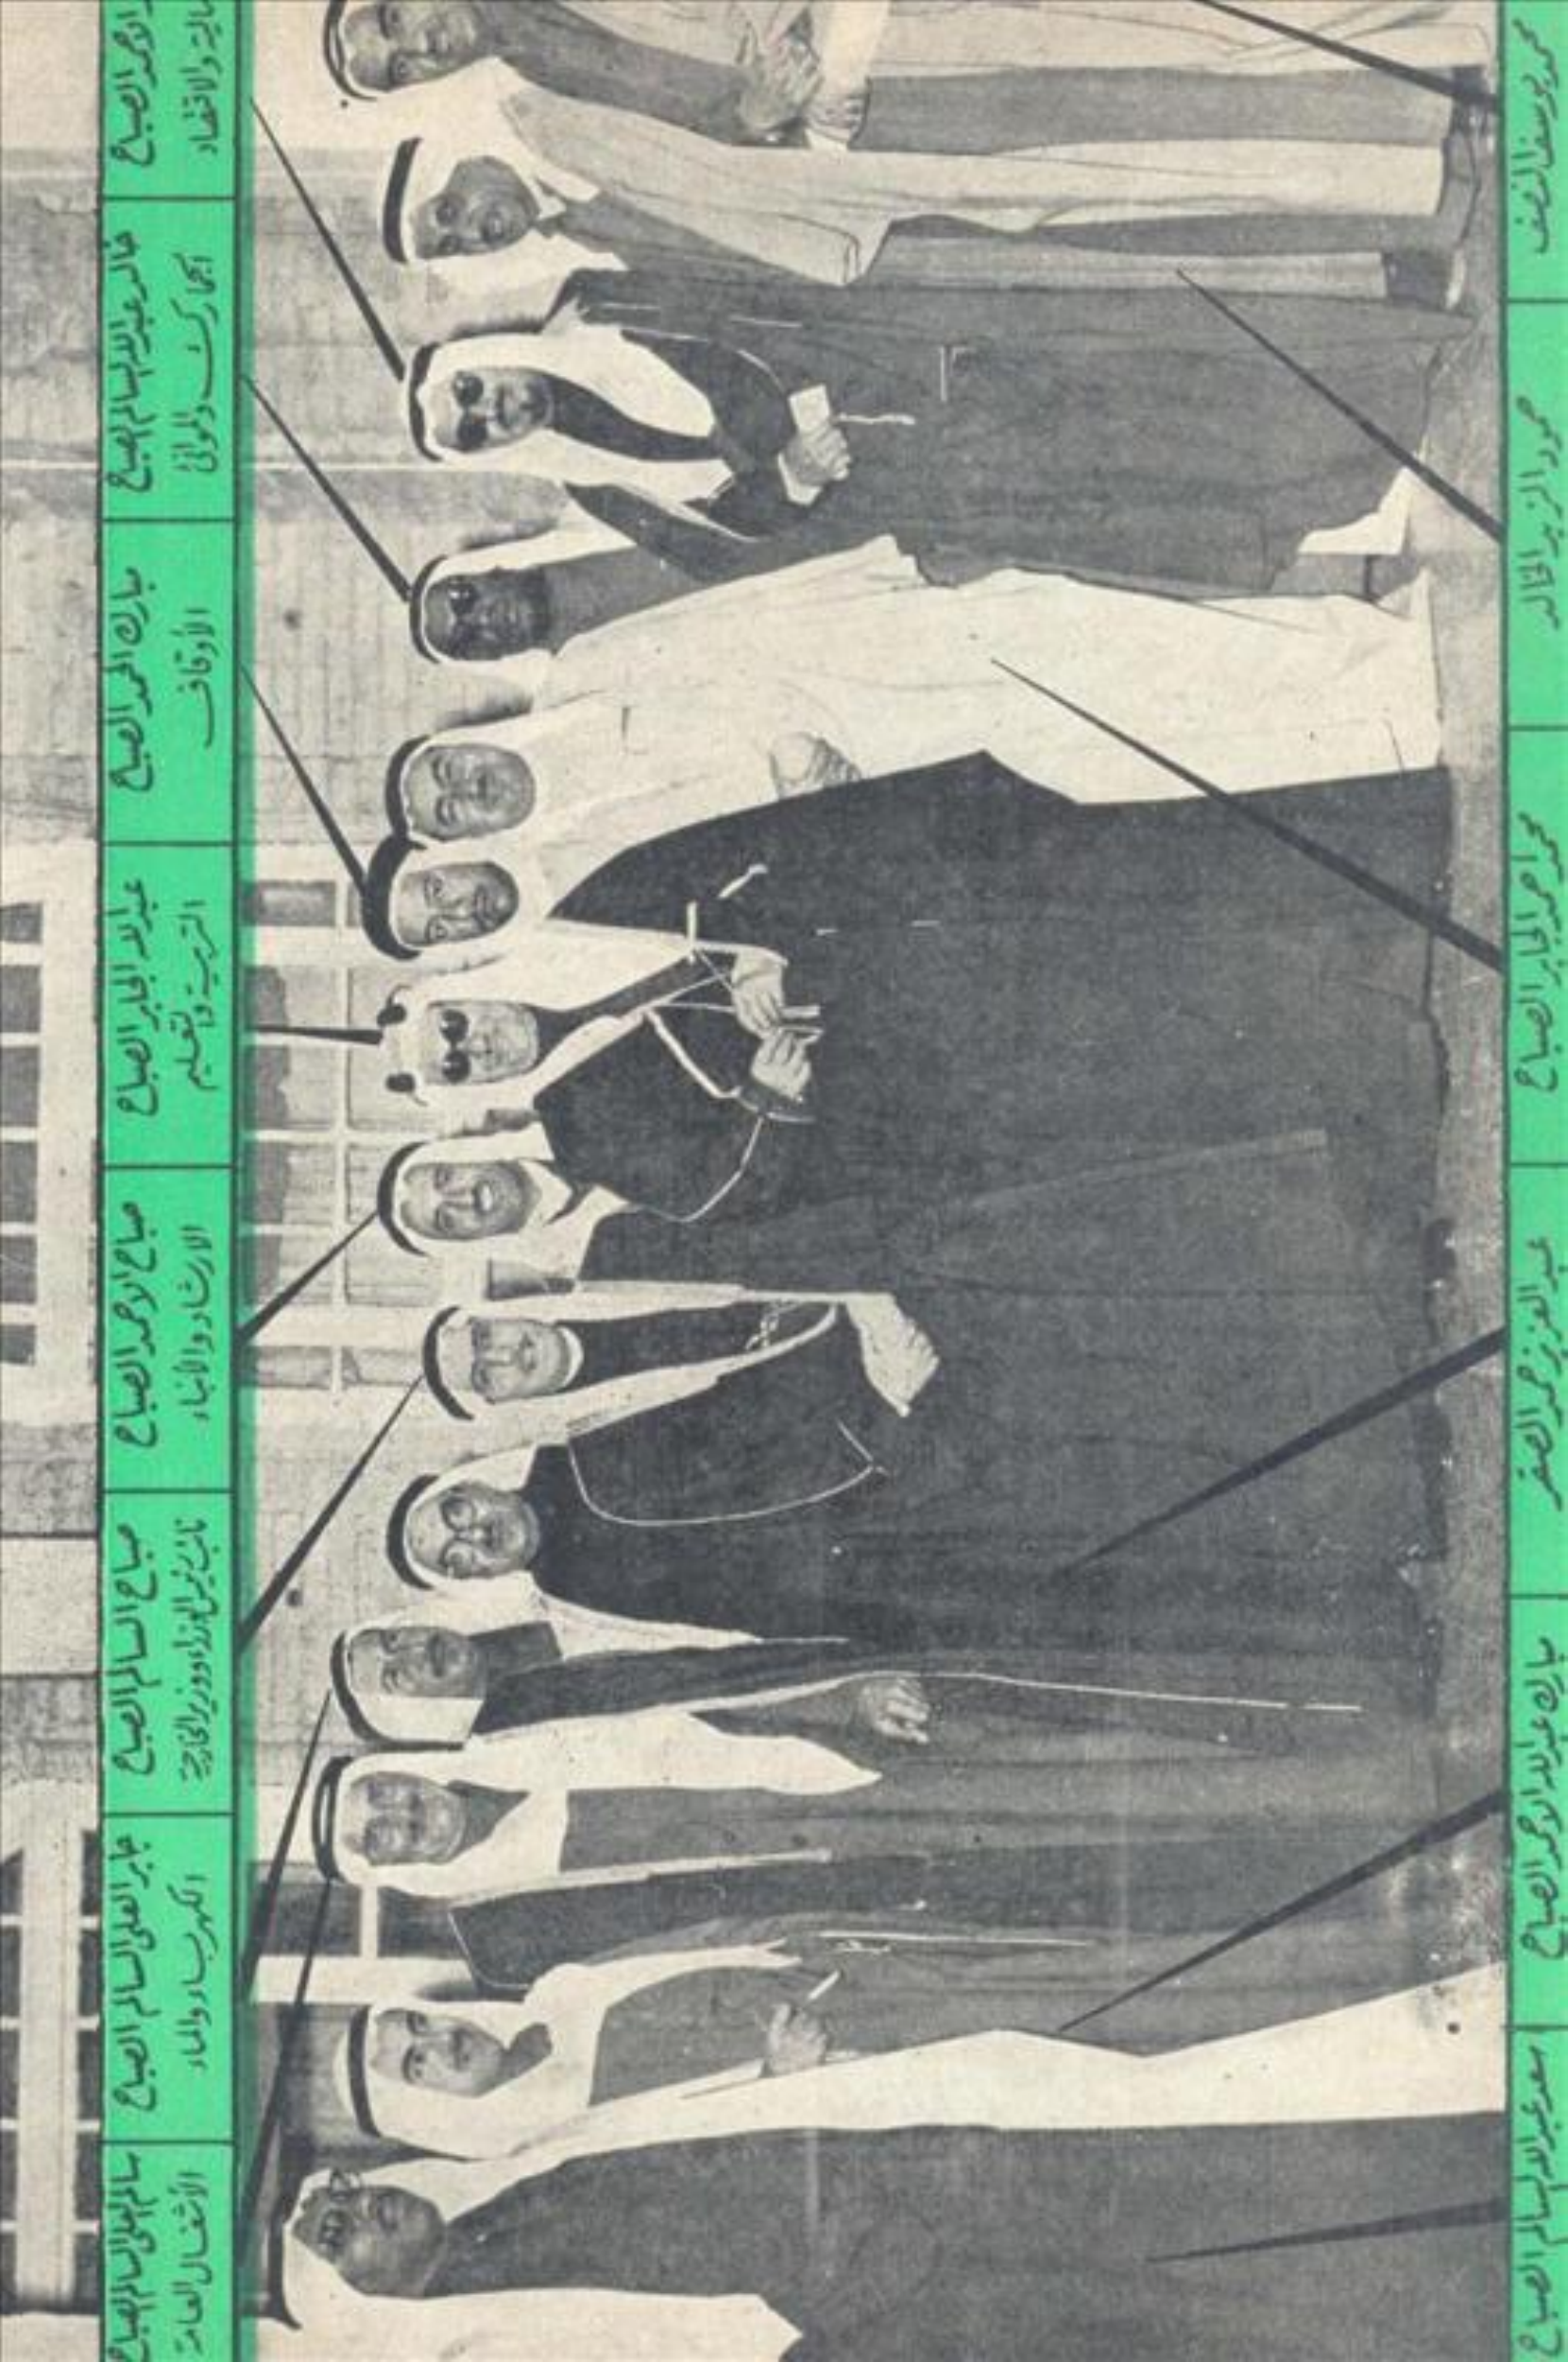 الاحمد الصباح
ـالية والاقتصاد
خالد عبدالله السالم الصباح
الجمارك والموانئ
مبارك الحمد الصباح
الأوقاف
عبدالله الجابر الصباح
التربية والتعليم
صباح الاحمد الصباح
الارشاد والأنباء
صباح السالم الصباح
نائب رئيس الوزراء ووزير الخارجية
جابر العلي السالم الصباح
الكهرباء والماء
سالم العلي السالم الصباح
الأشغال العامة
محمد يوسف النصف
حمود الزيد الخالد
محمد احمد الجابر الصباح
عبد العزيز حمد الصقر
مبارك عبدالله الاحمد الصباح
سعد عبدالله السالم الصباح